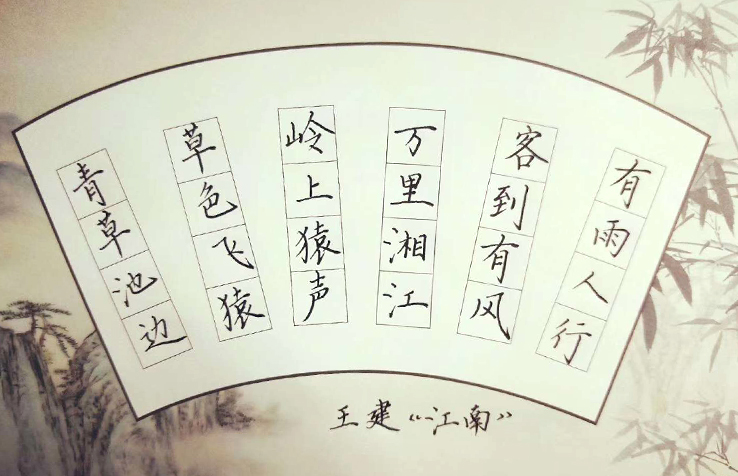 青草池边
草色飞猿
岭上猿声
万里湘江
客到有风
有雨人行
王建《江南》